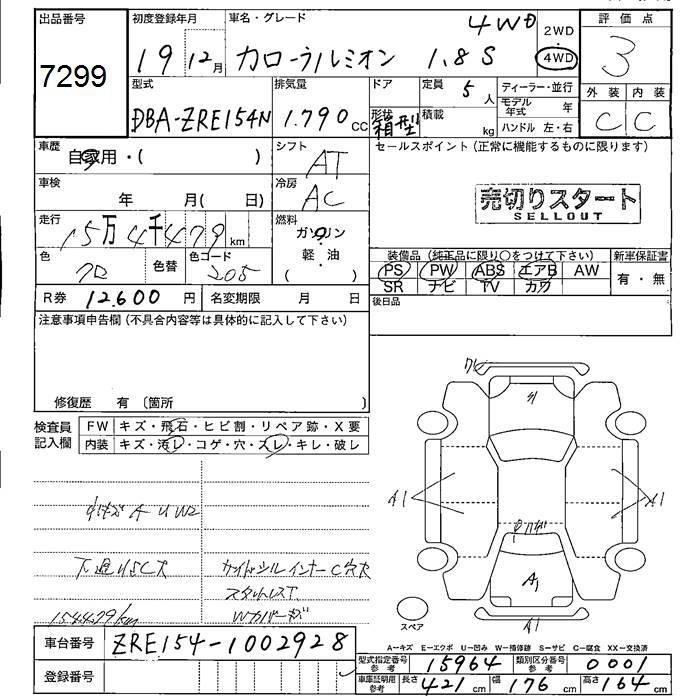 出品番号
7299
初度登録年月
19 12月
車名・グレード
カローラルミオン 1.8 S 4WD
2WD
4WD
評価点
3
外装 内装
C C
型式
DBA-ZRE154N
排気量
1.790 CC
ドア
形状
箱型
定員
5人
積載
kg
ディーラー・並行
モデル年式 年
ハンドル 左・右
車歴
自家用・( )
シフト
AT
セールスポイント (正常に機能するものに限ります)
車検
年 月( 日)
冷房
AC
売切りスタート
SELLOUT
走行
15万4千479km
燃料
ガソリン
(軽・油)
色
クロ
色替
色コード
205
装備品 (純正品に限り○をつけて下さい)
PS PW ABS エアB AW
SR ナビ TV カワ
新車保証書
有・無
R券 12.600 円
名変期限 月 日
後日品
注意事項申告欄 (不具合内容等は具体的に記入して下さい)
修復歴 有 〔箇所 〕
検査員記入欄
FW キズ・飛石・ヒビ割・リペア跡・X要
内装 キズ・汚レ・コゲ・穴・スレ・キレ・破レ
A U W2
サイドシルインナーC穴大
スタットレスT
154479km
Wカバーキズ
A1 A1
A1
A1
スペア
A-キズ E-エクボ U-凹み W-補修跡 S-サビ C-腐食 XX-交換済
車台番号 ZRE154-1002928
登録番号
型式指定番号参考 15964
類別区分番号参考 0001
車庫証明用参考 長さ 421 cm 幅 176 cm 高さ 164 cm